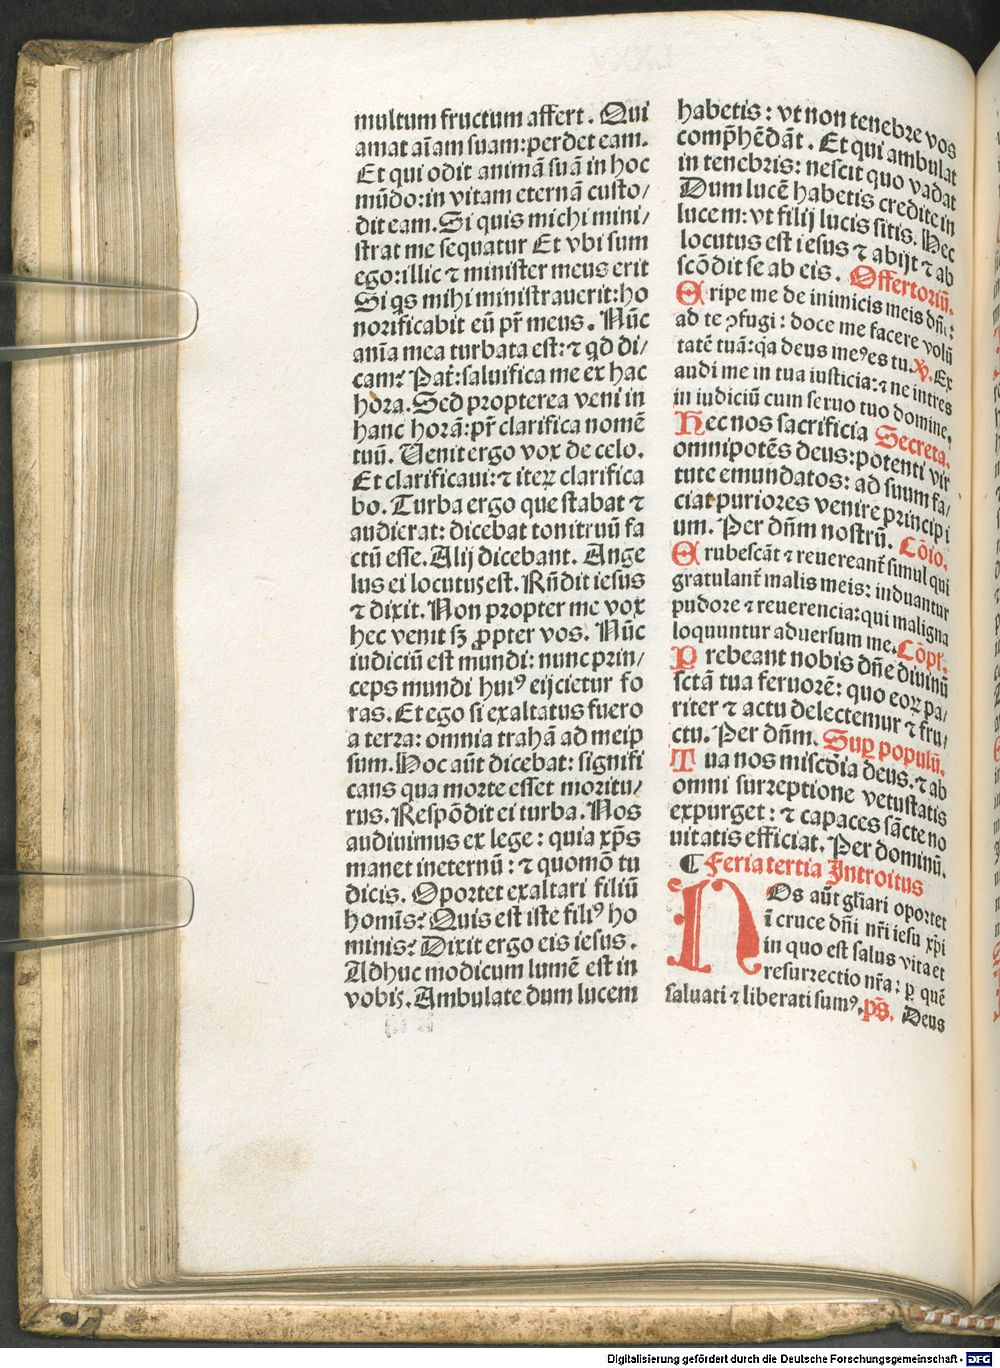 multum fructum affert. Qui
amat aīam suam: perdet eam.
Et qui odit animā suā in hoc
mūdo: in vitam eternā custo/
dit eam. Si quis michi mini/
strat me sequatur Et vbi sum
ego: illic ⁊ minister meus erit
Si qs mihi ministrauerit: ho
norificabit eū pr̄ meus. Nūc
anīa mea turbata est: ⁊ qd di/
cam? Pat̄: saluifica me ex hac
hora. Sed propterea veni in
hanc horā: pr̄ clarifica nomē
tuū. Uenit ergo vox de celo.
Et clarificaui: ⁊ iteꝝ clarifica
bo. Turba ergo que stabat ⁊
audierat: dicebat tonitruū fa
ctū esse. Alij dicebant. Ange
lus ei locutuꝫ est. Rn̄dit iesus
⁊ dixit. Non propter me vox
hec venit sꝫ ꝓpter vos. Nūc
iudiciū est mundi: nunc prin/
ceps mundi huiꝰ eijcietur fo
ras. Et ego si exaltatus fuero
a terra: omnia trahā ad meip
sum. Hoc aūt dicebat: signifi
cans qua morte esset moritu/
rus. Respōdit ei turba. Nos
audiuimus ex lege: quia xp̄s
manet ineternū: ⁊ quomō tu
dicis. Oportet exaltari filiū
homīs? Quis est iste filiꝰ ho
minis? Dixit ergo eis iesus.
Adhuc modicum lumē est in
vobiꝫ. Ambulate dum lucem
habetis: vt non tenebre vos
comp̄hēdāt. Et qui ambulat
in tenebris: nescit quo vadat
Dum lucē habetis credite in
lucem: vt filij lucis sitis. Hec
locutus est iesus ⁊ abijt ⁊ ab
scōdit se ab eis. Offertoriū.
Eripe me de inimicis meis dn̄e:
ad te ꝯfugi: doce me facere volū
tatē tuā: qa deus meꝰ es tu. V. Ex
audi me in tua iusticia: ⁊ ne intres
in iudiciū cum seruo tuo domine.
Hec nos sacrificia Secreta.
omnipotēs deus: potenti vir
tute emundatos: ad suum fa/
ciat puriores venire principi
um. Per dn̄m nostrū. Cōio.
Erubescāt ⁊ reuereant̄ simul qui
gratulant̄ malis meis: induantur
pudore ⁊ reuerencia: qui maligna
loquuntur aduersum me. Cōpl̄.
Prebeant nobis dn̄e diuinū
sctā tua feruorē: quo eoꝝ pa/
riter ⁊ actu delectemur ⁊ fru/
ctu. Per dn̄m. Suꝑ populū.
Tua nos miscōīa deus. ⁊ ab
omni surreptione vetustatis
expurget: ⁊ capaces sācte no
uitatis efficiat. Per dominū.
¶ Feria tertia Introitus
NOs aūt gl̄iari oportet
ī cruce dn̄i nr̄i iesu xp̄i
in quo est salus vita et
resurrectio nr̄a: ꝑ quē
saluati ⁊ liberati sumꝰ. ps̄. Deus
Digitalisierung gefördert durch die Deutsche Forschungsgemeinschaft - DFG